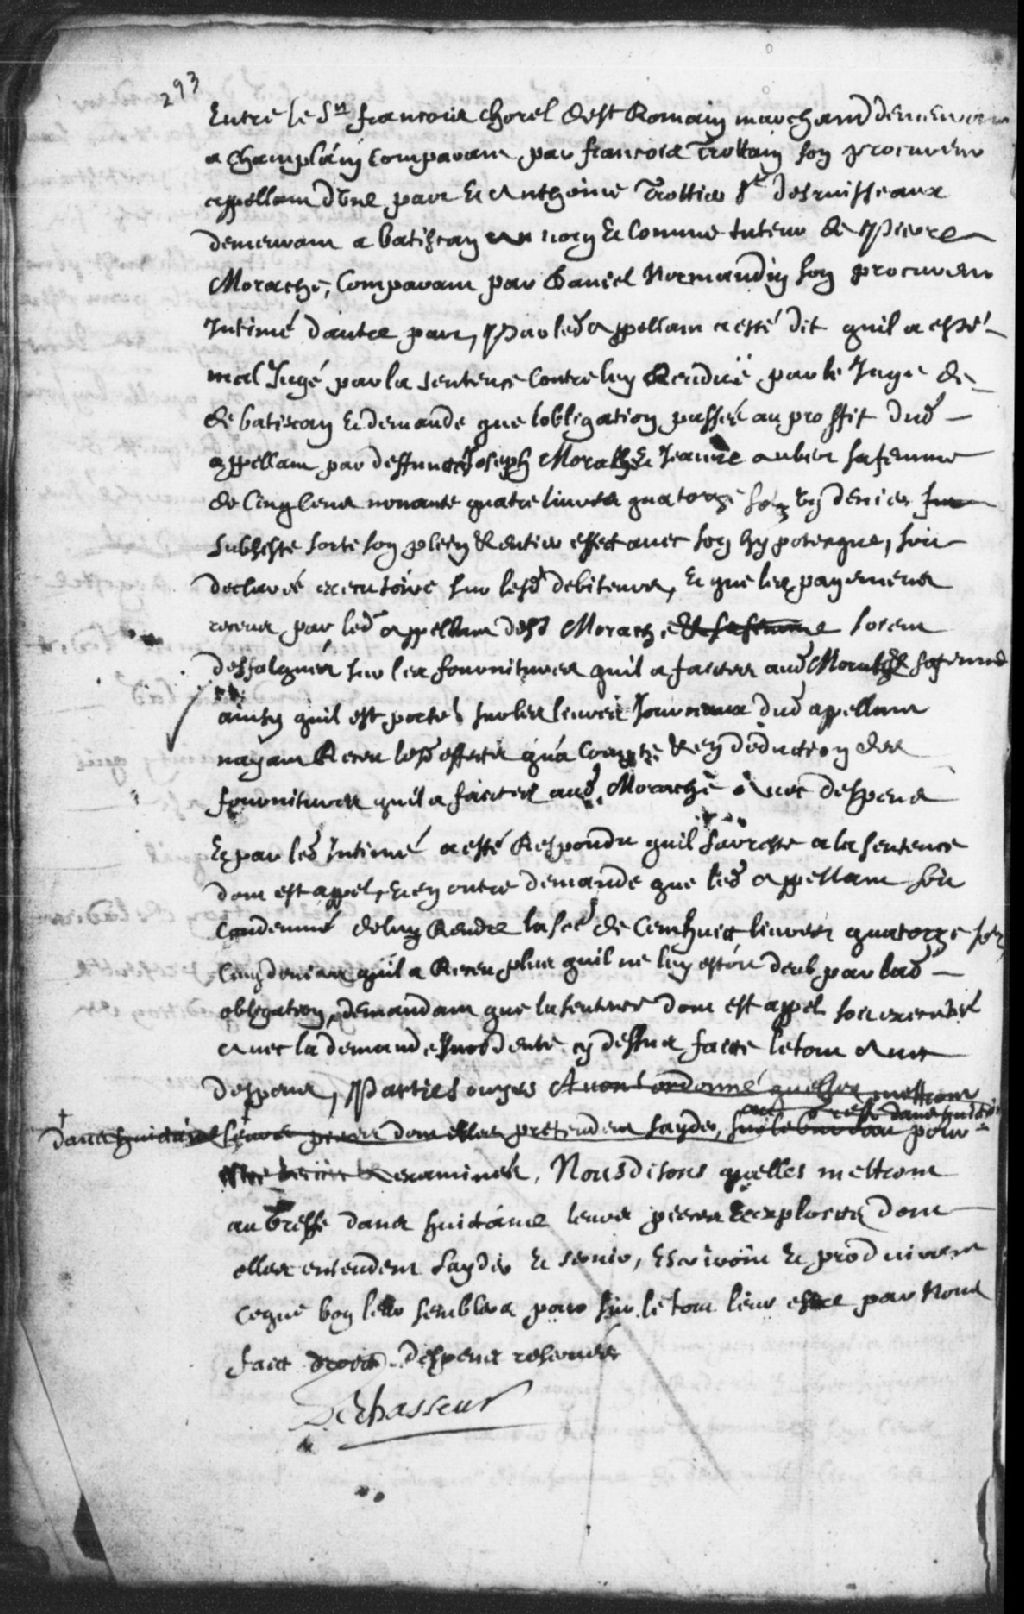 293
Entre le Sr francois Chorel de st Romain marchand demeurant
a Champlain Comparant par francois Trottain son procureur
appellant d'Une part Et Anthoine Trottier Sr desruisseaux
demeurant a batiscan au nom Et Comme tuteur de Pierre
Morache, Comparant par Daniel Normandin son procureur
Intimé dautre part, Par led appellant a esté dit quil a esté
mal Jugé par la sentence Contre luy Rendüe par le Juge de
de batiscan Et demande que lobligation passée au proffit dud
appellant par deffunct Joseph Morache & Jeanne aubier sa femme
de Cinq Cens nonante quatre liures quatorze solz vj deniers
subsiste sorte son plein & entier effect auec son hypoteque, soit
declarée executoire sur lesd debiteurs, Et que les payemens
receus par led appellant desd Morache & sa femme soient
desfalquées sur les fournitures quil a faictes aud Morache & sa femme
ainsy quil est porté sur les liures Journaux dud appellant
nayant Receu lesd effects qua Compte & en deduction des
fournitures quil a faictes aud Morache Auec despens
Et par led Intimé a esté Respondu quil sarreste a la sentence
dont est appel, Et en outre demande que led appellant soit
Condemné de luy Rendre la so֠e de Cent huict liures quatorze solz
Cinq deniers quil a Receu plus quil ne luy estoit deub par lad
obligation, demandant que la sentence dont est appel soit executée
Auec la demande Incidente cy dessus faicte le tout Auec
despens, Parties ouyes Auons ordonné quelles mettront
au greffe dans huictaine
dans huictaine leurs pieces dont elles pretendent sayder, sur le bureau pour
Examinées, Nous disons quelles mettront
au Greffe dans huictaine leurs pieces & exploicts dont
elles entendent sayder Et seruir, Escriront Et produiront
ce que bon leur semblera pour sur le tout leur estre par Nous
faict droict despens reserués
Lechasseur